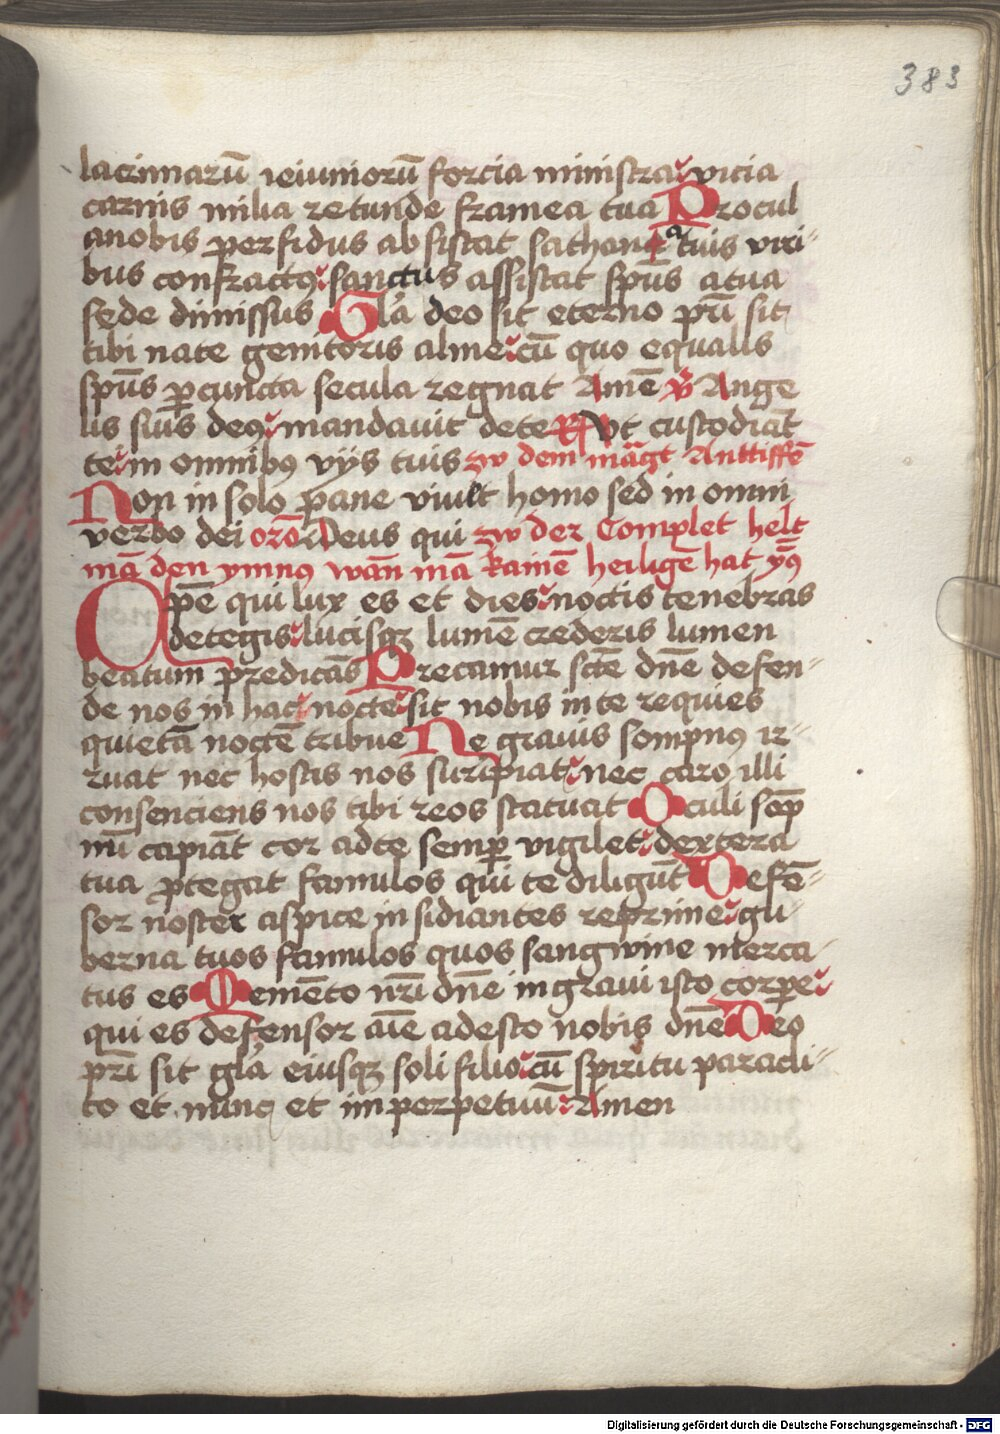 383
lacrimarū ieiuniorū forcia ministra vicia
carnis milia retunde framea tua Procul
anobis perfidus absistat sathan a tuis viri-
bus confractꝰ sanctus assistat spūs atua
sede dimissus Glā deo sit eterno pri sit
tibi nate genitoris alme cū quo equalis
spūs ꝑcuncta secula regnat Amē ℣ Ange
lis suis deꝰ mandavit dete ℟ Vt custodiāt
te in omnibꝰ vijs tuis zw dem māgt Anttiffē
Non in solo pane viuit homo sed in omni
verbo dei orō Deus qui zw der Complet helt
mā den ymnꝰ wān mā kainē heiligē hat yꝰ
Ope qui lux es et dies noctis tenebras
detegis lucisqꝫ lumē crederis lumen
beatum predicās Precamur sctē dnē defen-
de nos in hac nocte sit nobis inte requies
quietā noctē tribue Ne grauis sompnꝰ ir-
ruat nec hostis nos suripiat nec caro illi
consenciens nos tibi reos statuat Oculi sōp
nū capiāt cor adte semꝑ vigilet dextera
tua ꝓtegat famulos qui te diligūt Defē-
sor noster aspice insidiantes reprime gu-
berna tuos famulos quos sangwine merca-
tus es Memēto nri dnē ingraui isto corpe
qui es defensor aīe adesto nobis dnē Deo
pri sit glā eiusqꝫ soli filio cū spiritu paracli-
to et nunc et imperpetuū Amen
Digitalisierung gefördert durch die Deutsche Forschungsgemeinschaft - DFG